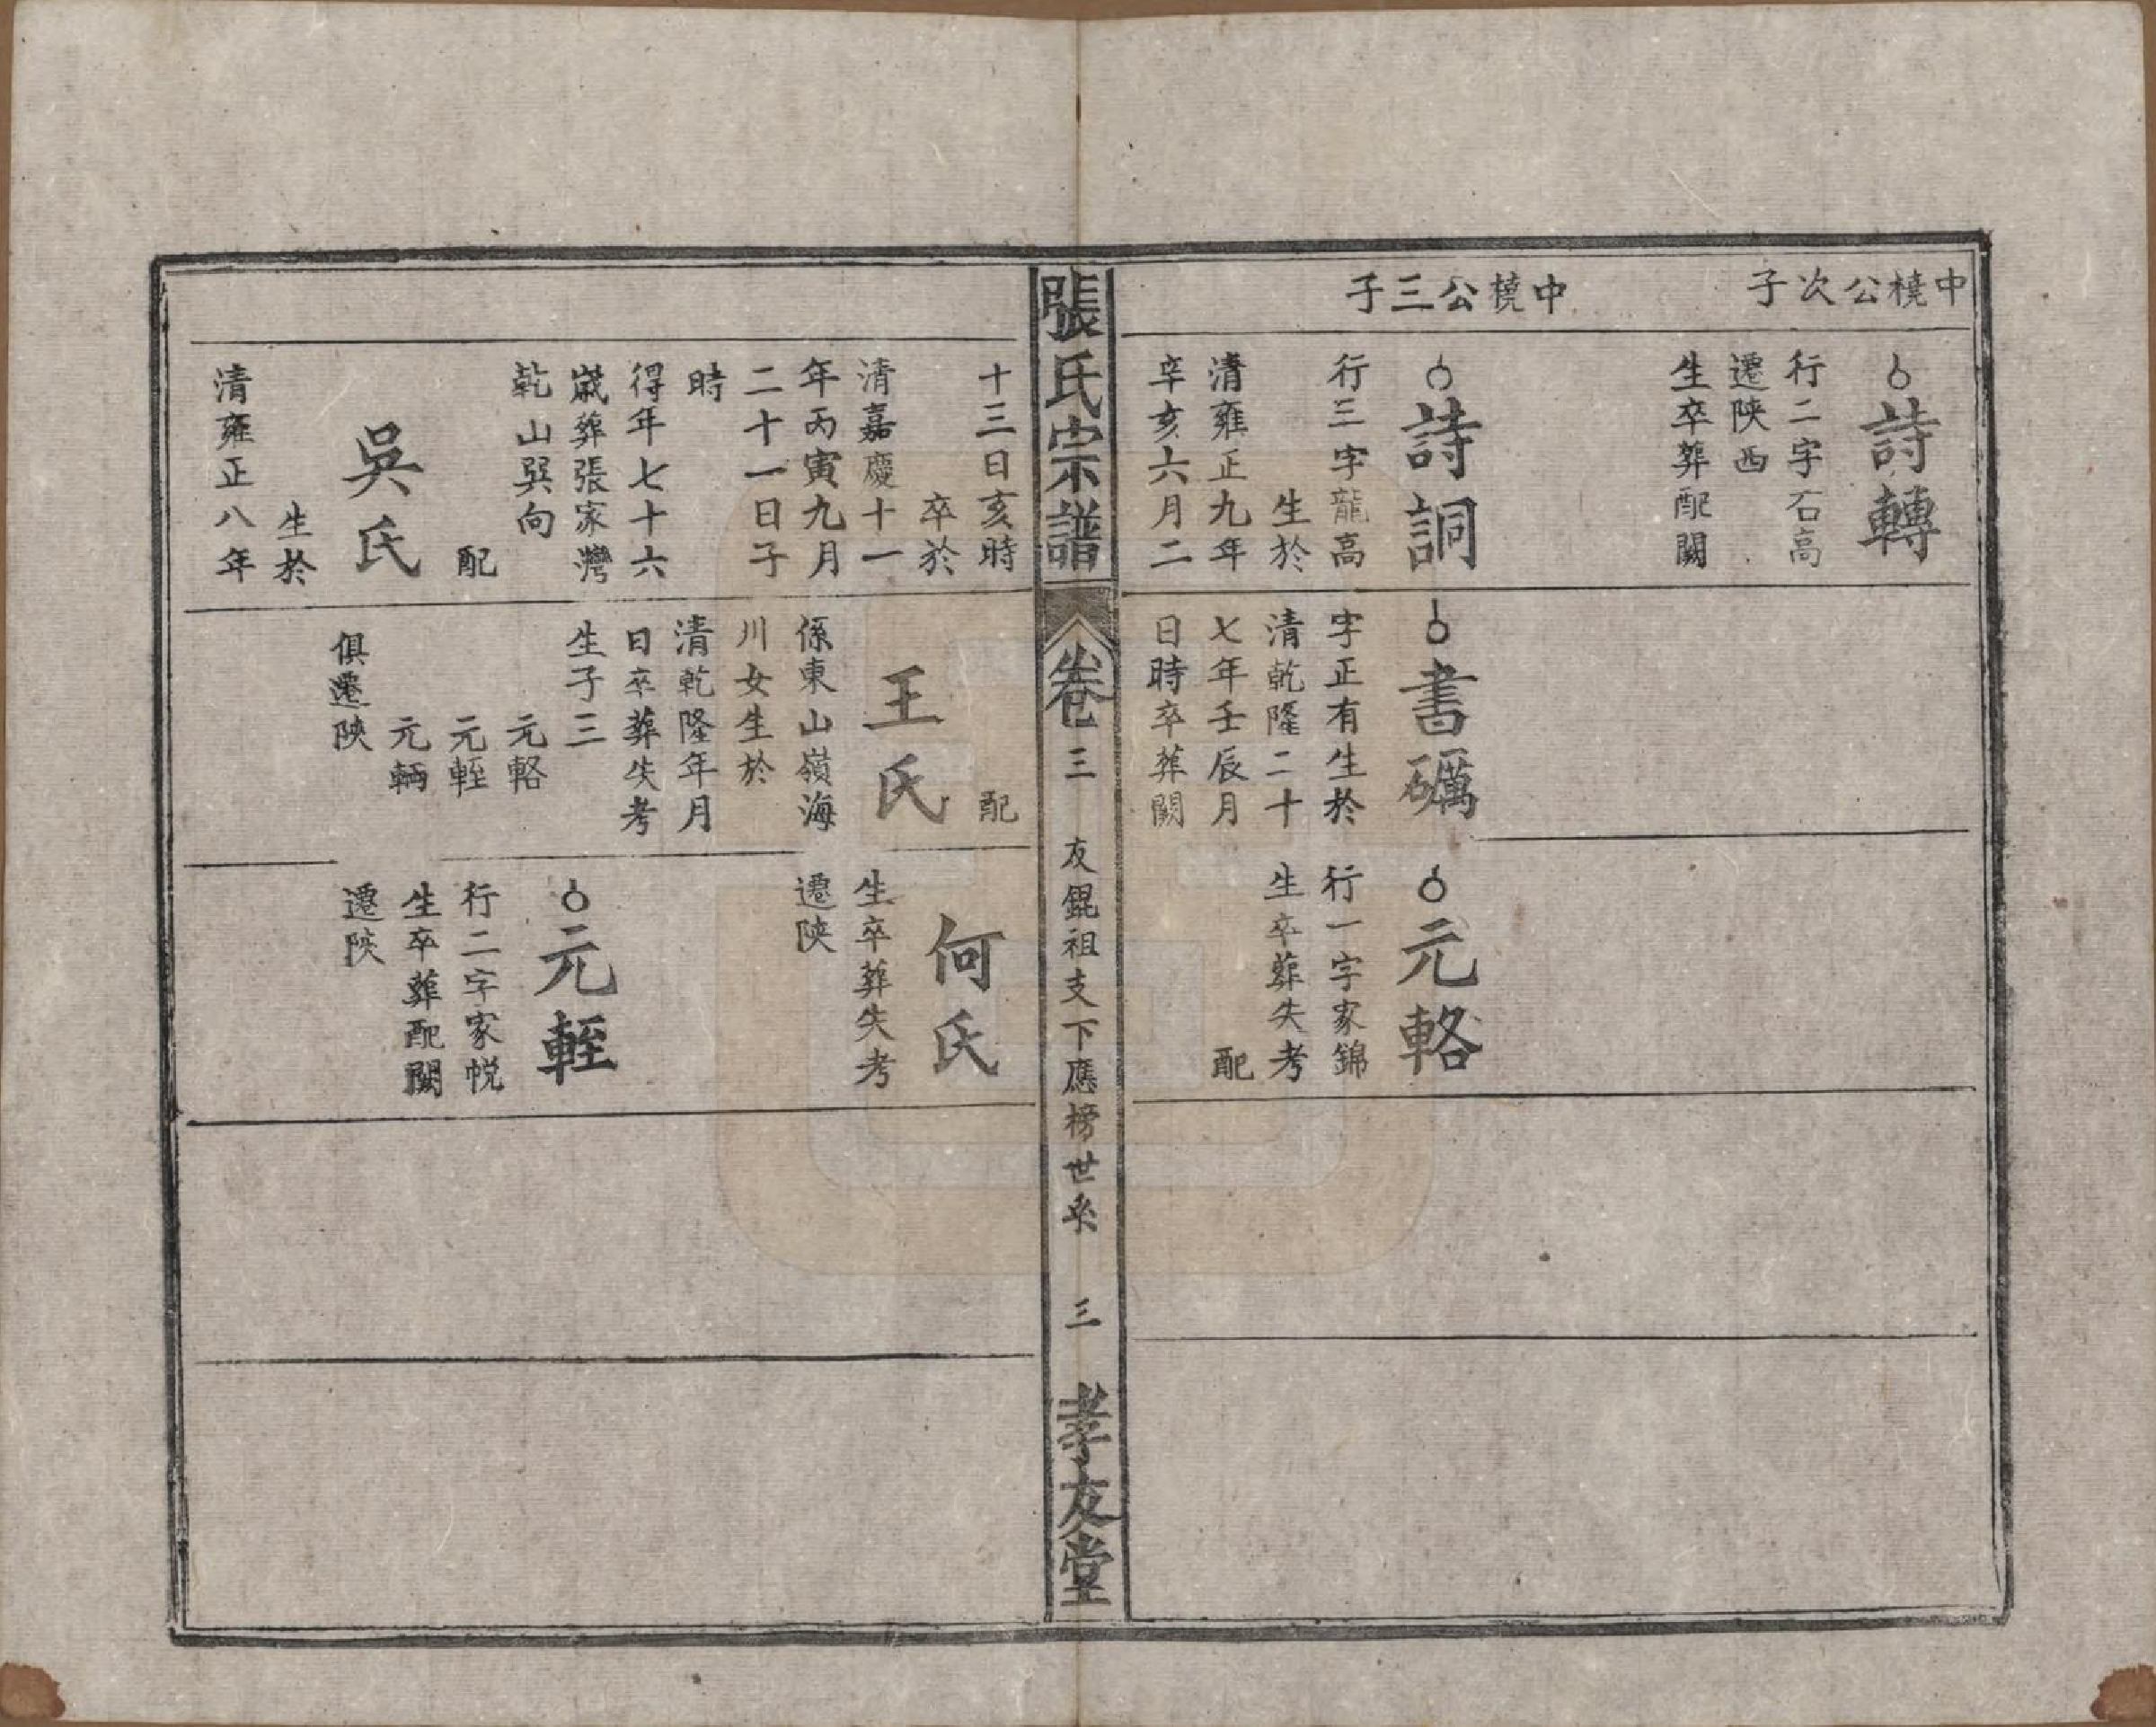 中橈公次子
詩轉
行二字石高
遷陝西
生卒葬配闕
中橈公三子
詩詞
行三字龍高
生於
清雍正九年
辛亥六月二
書礪
字正有生於
清乾隆二十
七年壬辰月
日時卒葬闕
元輅
行一字家錦
生卒葬失考
配
張氏宗譜
卷三
友錕祖支下應榜世系
三
孝友堂
十三日亥時
卒於
清嘉慶十一
年丙寅九月
二十一日子
時
得年七十六
歲葬張家灣
乾山巽向
配
吳氏
生於
清雍正八年
配
王氏
係東山嶺海
川女生於
清乾隆年月
日卒葬失考
生子三
元輅
元輊
元輛
俱遷陝
何氏
生卒葬失考
遷陝
元輊
行二字家悅
生卒葬配闕
遷陝